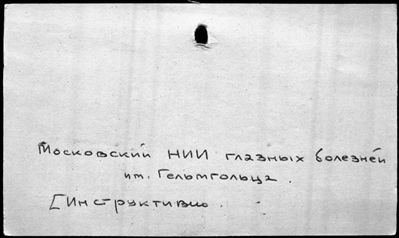 Московский НИИ глазных болезней
им. Гельмгольца.
[Инструктивно.